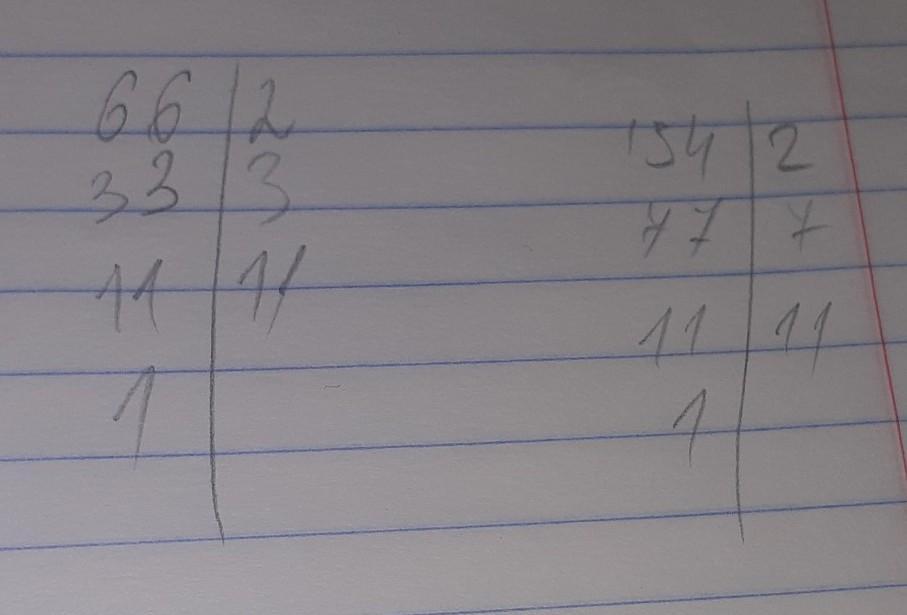 66 | 2
33 | 3
11 | 11
1 |
154 | 2
77 | 7
11 | 11
1 |